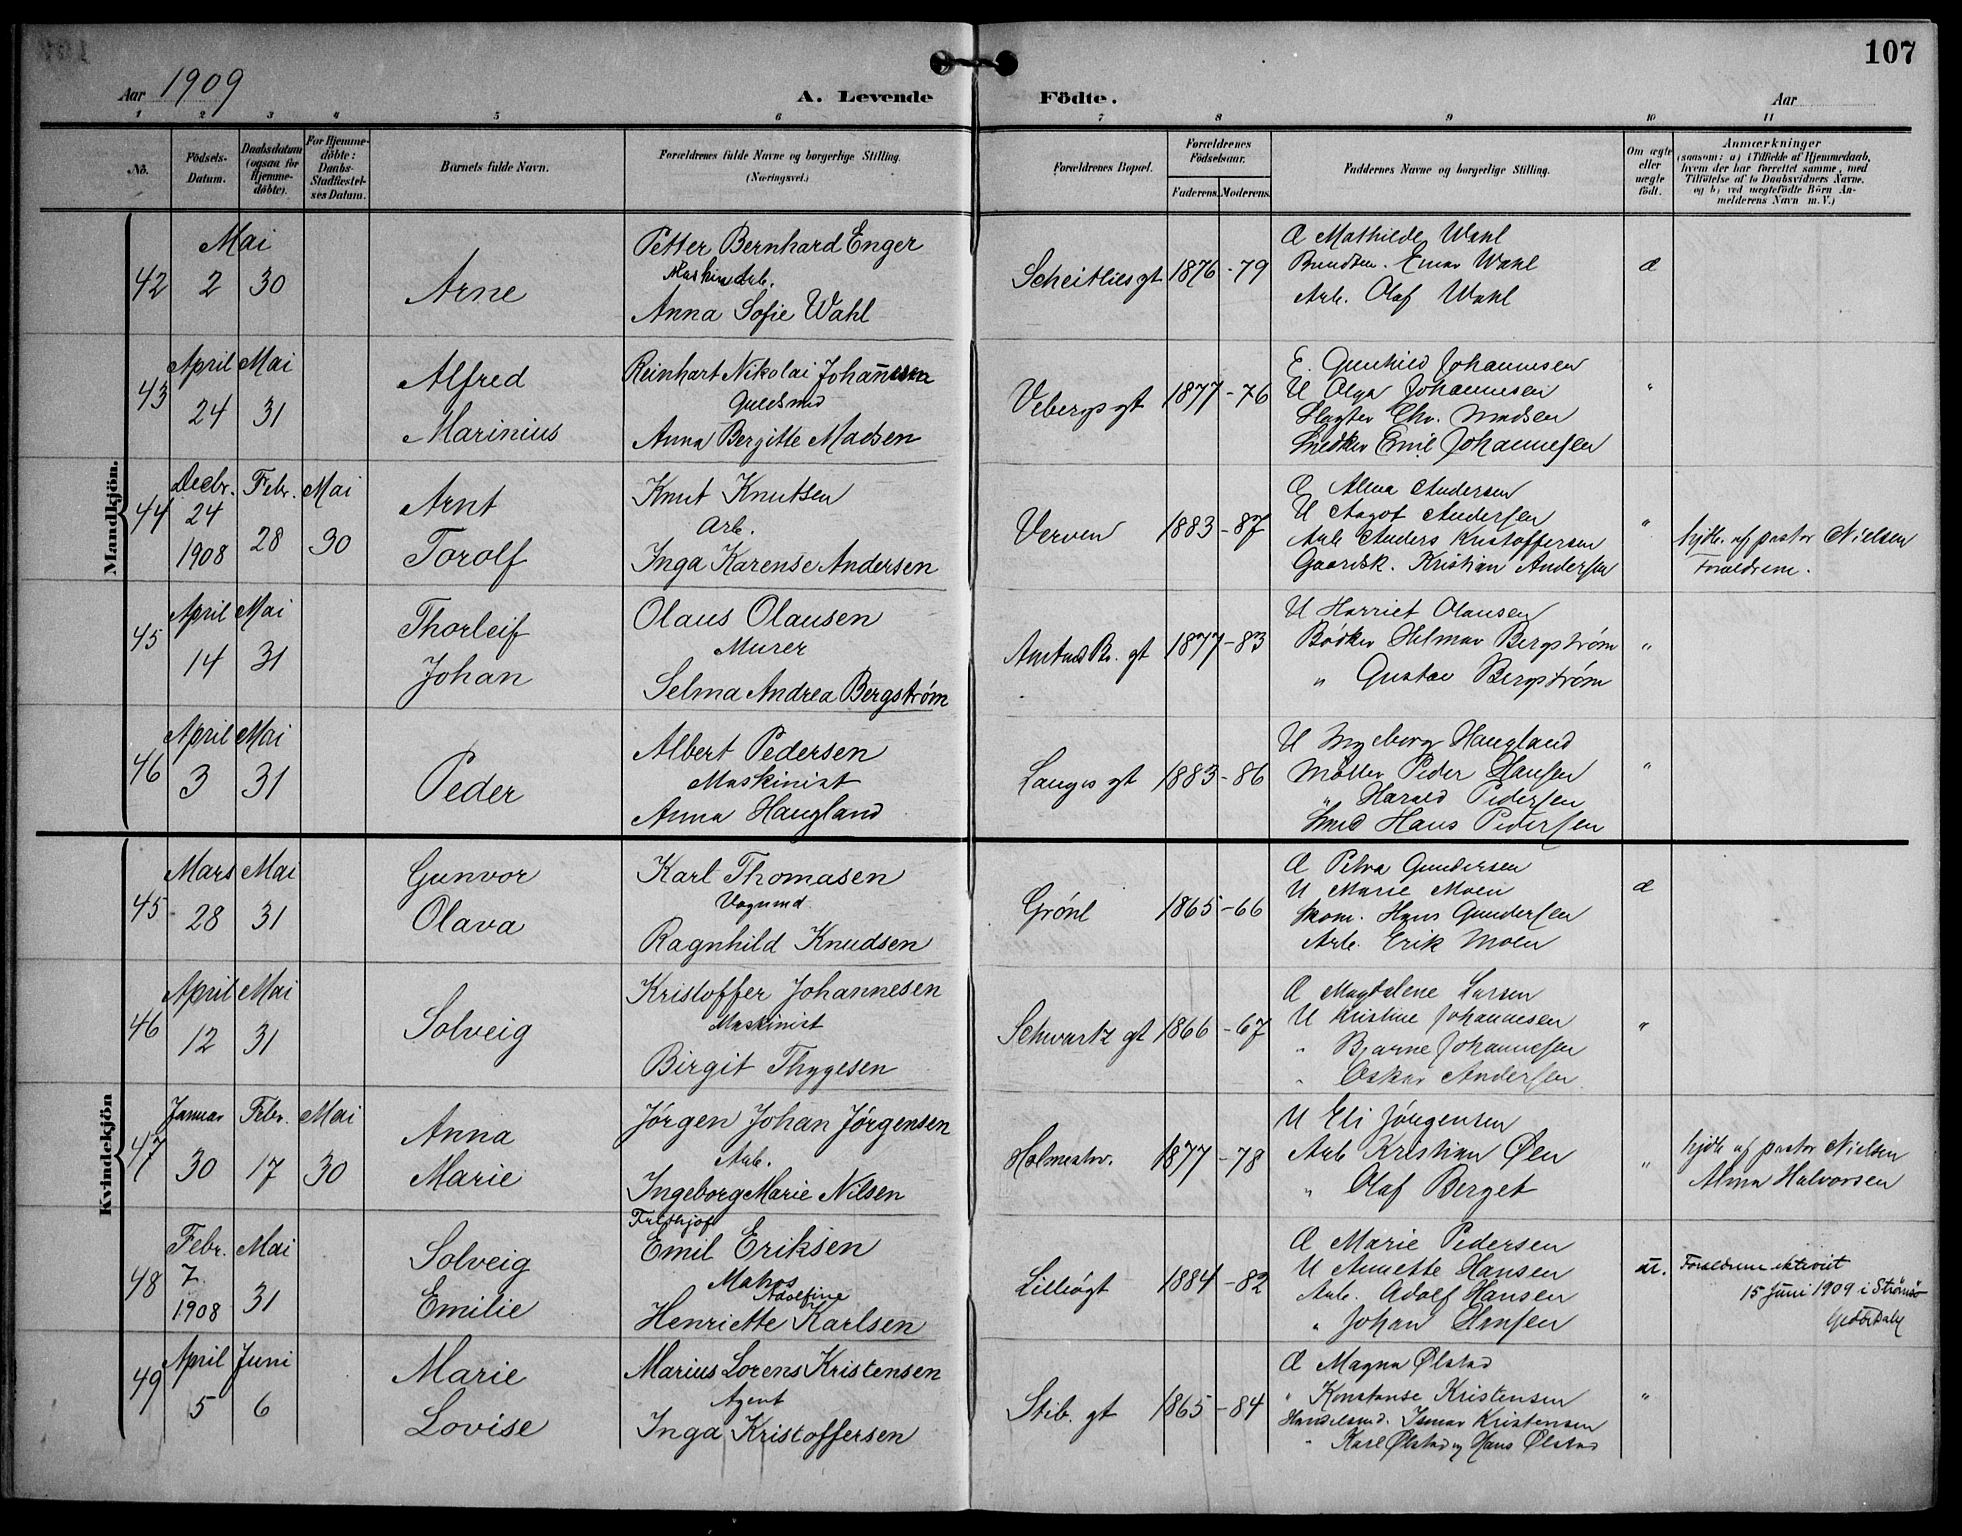 107
Aar 1909
A. Levende
Födte.
Aar
1 2 3 4 5 6 7 8 9 10 11
No.
Födsels-Datum.
Daabsdatum (ogsaa for Hjemmedöbte).
For Hjemmedöbte: Daabs-Stadfæstelses Datum.
Barnets fulde Navn.
Forældrenes fulde Navne og borgerlige Stilling. (Næringsvei.)
Forældrenes Bopæl.
Forældrenes Födselsaar.
Faderens. Moderens.
Faddernes Navne og borgerlige Stilling.
Om ægte eller uægte födt.
Anmærkninger
(saasom: a) i Tilfælde af Hjemmedaab, hvem der har forrettet samme, med Tilföielse af to Daabsvidners Navne, og b) ved uægtefödte Börn Anmelderens Navn m. V.)
Mandkjön.
42 Mai 2 30
Arne
Petter Bernhard Enger
Maskinarb.
Anna Sofie Wahl
Scheitliesgt 1876 - 79
Æ Mathilde Wahl
Einar Wahl
Arb. Olaf Wahl
æ
43 April 24 Mai 31
Alfred
Marinius
Reinhart Nikolai Johannesen
Guldsmed
Anna Bergitte Madsen
Vebergsgt 1877 - 76
E. Gunhild Johannesen
U Olga Johannesen
Slagter Chr. Madsen
Snedker Emil Johannesen
"
44 Decbr. 24 1908 Febr. 28 Mai 30
Arnt
Torolf
Knut Knutsen
Arb.
Inga Karense Andersen
Verven 1883 - 87
Æ Alma Andersen
U Aagot Andersen
Arb Anders Kristoffersen
Gaardsk. Kristian Andersen
"
hjdb. af pastor Nielsen
Forældrene.
45 April 14 Mai 31
Thorleif
Johan
Olaus Olausen
Murer
Selma Andrea Bergstrøm
gt 1877 - 83
U Harriet Olausen
Bødker Hilmar Bergstrøm
" Gustav Bergstrøm
"
46 April 3 Mai 31
Peder
Albert Pedersen
Maskinist
Anna Haugland
Langesgt 1883 - 86
U Ingeborg Haugland
Møller Peder Hansen
" Harald Pedersen
Smed Hans Pedersen
"
Kvindekjön
45 Mars 28 Mai 31
Gunvor
Olava
Karl Thomasen
Vognmd.
Ragnhild Knudsen
Grønl 1865 - 66
Æ Petra Gundersen
U Marie Moen
Skom. Hans Gundersen
Arb. Erik Moen
æ
46 April 12 Mai 31
Solveig
Kristoffer Johannesen
Maskinist
Birgit Thygesen
Schwartz gt 1866 - 67
Æ Magdalene Larsen
U Kristine Johannesen
" Bjarne Johannesen
" Oskar Andersen
"
47 Januar 30 Febr. 17 Mai 30
Anna
Marie
Jørgen Johan Jørgensen
Arb.
Ingeborg Marie Nilsen
Holmestr. 1877 - 78
U Eli Jörgensen
Arb Kristian Øen
" Olaf Berget
"
hjdb af pastor Nielsen
Alma Halvorsen
48 Febr. 7 1908 Mai 31
Solveig
Emilie
Frithjof
Emil Eriksen
Matros
Adolfine
Henriette Karlsen
Lilleøgt 1884 - 82
Æ Marie Pedersen
U Annette Hansen
Arb. Adolf Hansen
" Johan Hansen
u.
Forældrene
15 Juni 1909 i Strömsö
49 April 5 Juni 6
Marie
Lovise
Marius Lorens Kristensen
Agent
Inga Kristoffersen
Stib. gt 1865 - 84
Æ Magna Ølstad
" Konstanse Kristensen
Handelsmd. Kristensen
" Karl Ølstad og Hans Ølstad
"